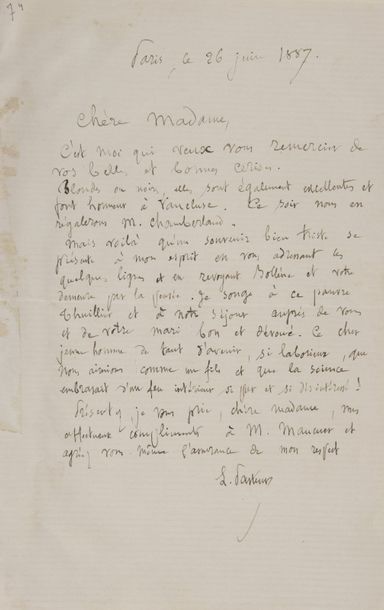 74
Paris, le 26 juin 1887.
Chère Madame,
C'est moi qui veux vous remercier de
vos belles et bonnes cerises.
Blondes ou noires, elles sont également excellentes et
font honneur à Vaucluse. Ce soir nous en
régalerons M. Chamberland.
Mais voilà qu'un souvenir bien triste se
présente à mon esprit en vous adressant ces
quelques lignes et en revoyant Bollène et votre
demeure par la pensée. Je songe à ce pauvre
Thuillier et à notre séjour auprès de vous
et de votre mari bon et dévoué. Ce cher
jeune homme de tant d'avenir, si laborieux, que
nous aimions comme un fils et que la science
embrasait d'un feu intérieur si pur et si désintéressé !
Présentez, je vous prie, chère madame, mes
affectueux compliments à M. Maucuer et
agréez vous-même l'assurance de mon respect
L. Pasteur